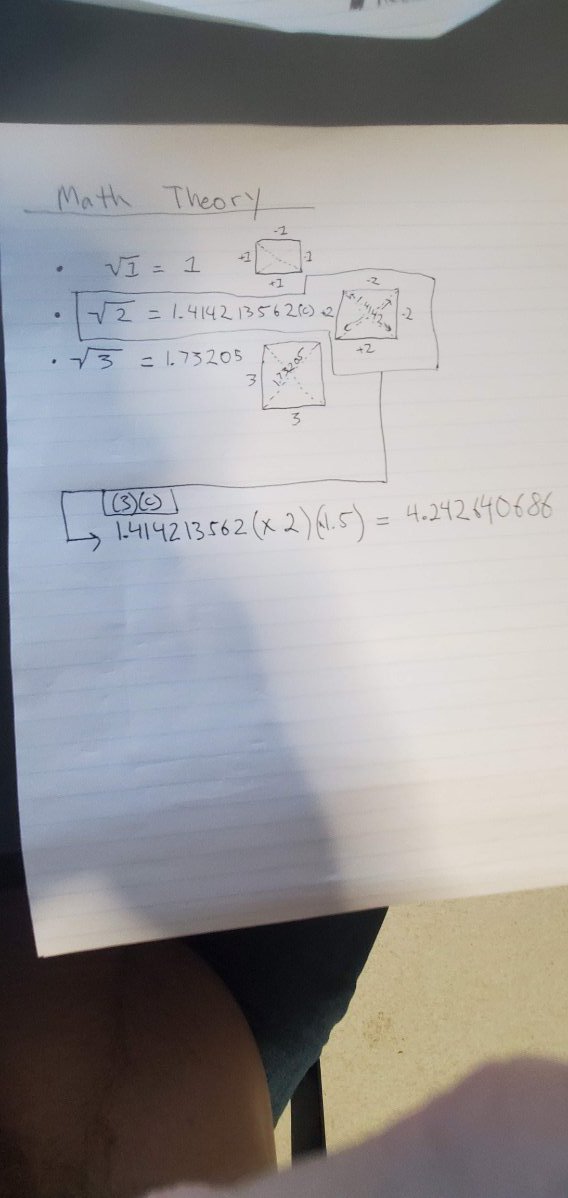 Math Theory
-1
• √1 = 1 +1 -1
+1
-2
• √2 = 1.414213562(c) +2 1.4142 -2
+2
• √3 = 1.73205 3 1.73205
3
(3)(c)
1.414213562(x2)(x1.5) = 4.242640686